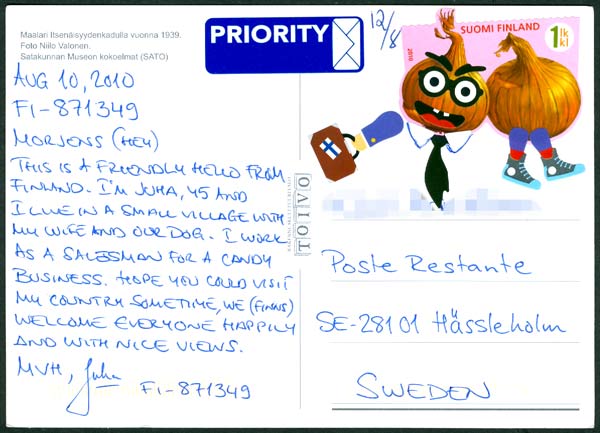 Maalari Itsenäisyydenkadulla vuonna 1939.
Foto Niilo Valonen.
Satakunnan Museon kokoelmat (SATO)
PRIORITY
12/8
SUOMI FINLAND
1 lk
kl
2010
AUG 10, 2010
FI-871349
MORJENS (HEY)
THIS IS A FRIENDLY HELLO FROM
FINLAND. I'M JUHA, 45 AND
I LIVE IN A SMALL VILLAGE WITH
MY WIFE AND OUR DOG. I WORK
AS A SALESMAN FOR A CANDY
BUSINESS. HOPE YOU COULD VISIT
MY COUNTRY SOMETIME, WE (FINNS)
WELCOME EVERYONE HAPPILY
AND WITH NICE VIEWS.
MVH, Juha
FI-871349
TOIVO
Poste Restante
SE-28101 Hässleholm
SWEDEN